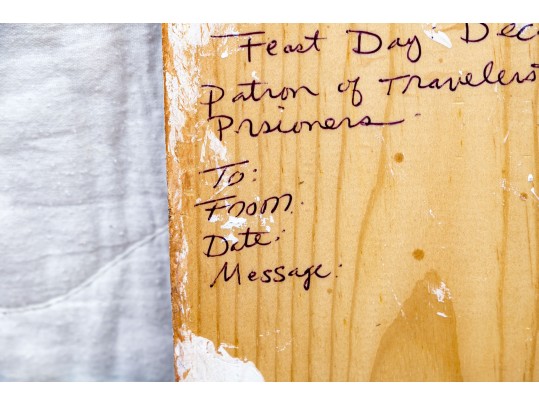 Feast Day Dec
Patron of Travelers
Prsioners
To:
From:
Date:
Message: